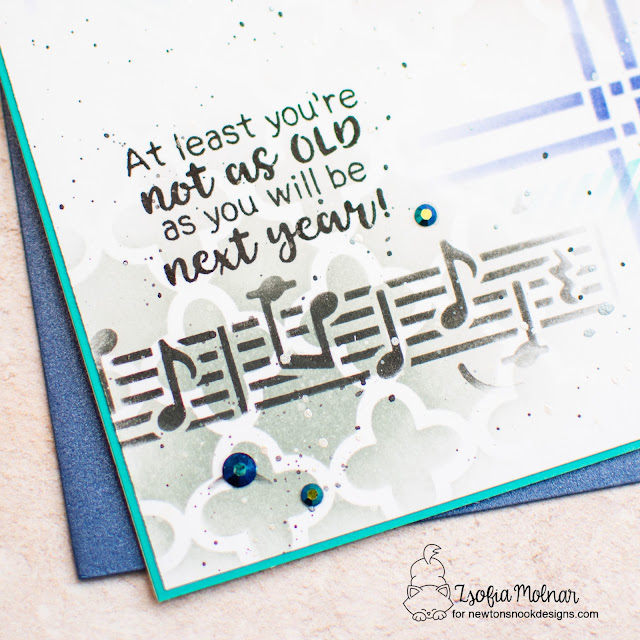 At least you're
not as OLD
as you will be
next year!
Zsofia Molnar
for newtonsnookdesigns.com